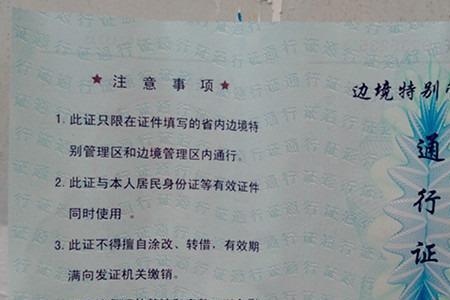 ★ 注意事项 ★
1. 此证只限在证件填写的省内边境特
别管理区和边境管理区内通行。
2. 此证与本人居民身份证等有效证件
同时使用 。
3. 此证不得擅自涂改、转借，有效期
满向发证机关缴销。
边境特别
通
行
证